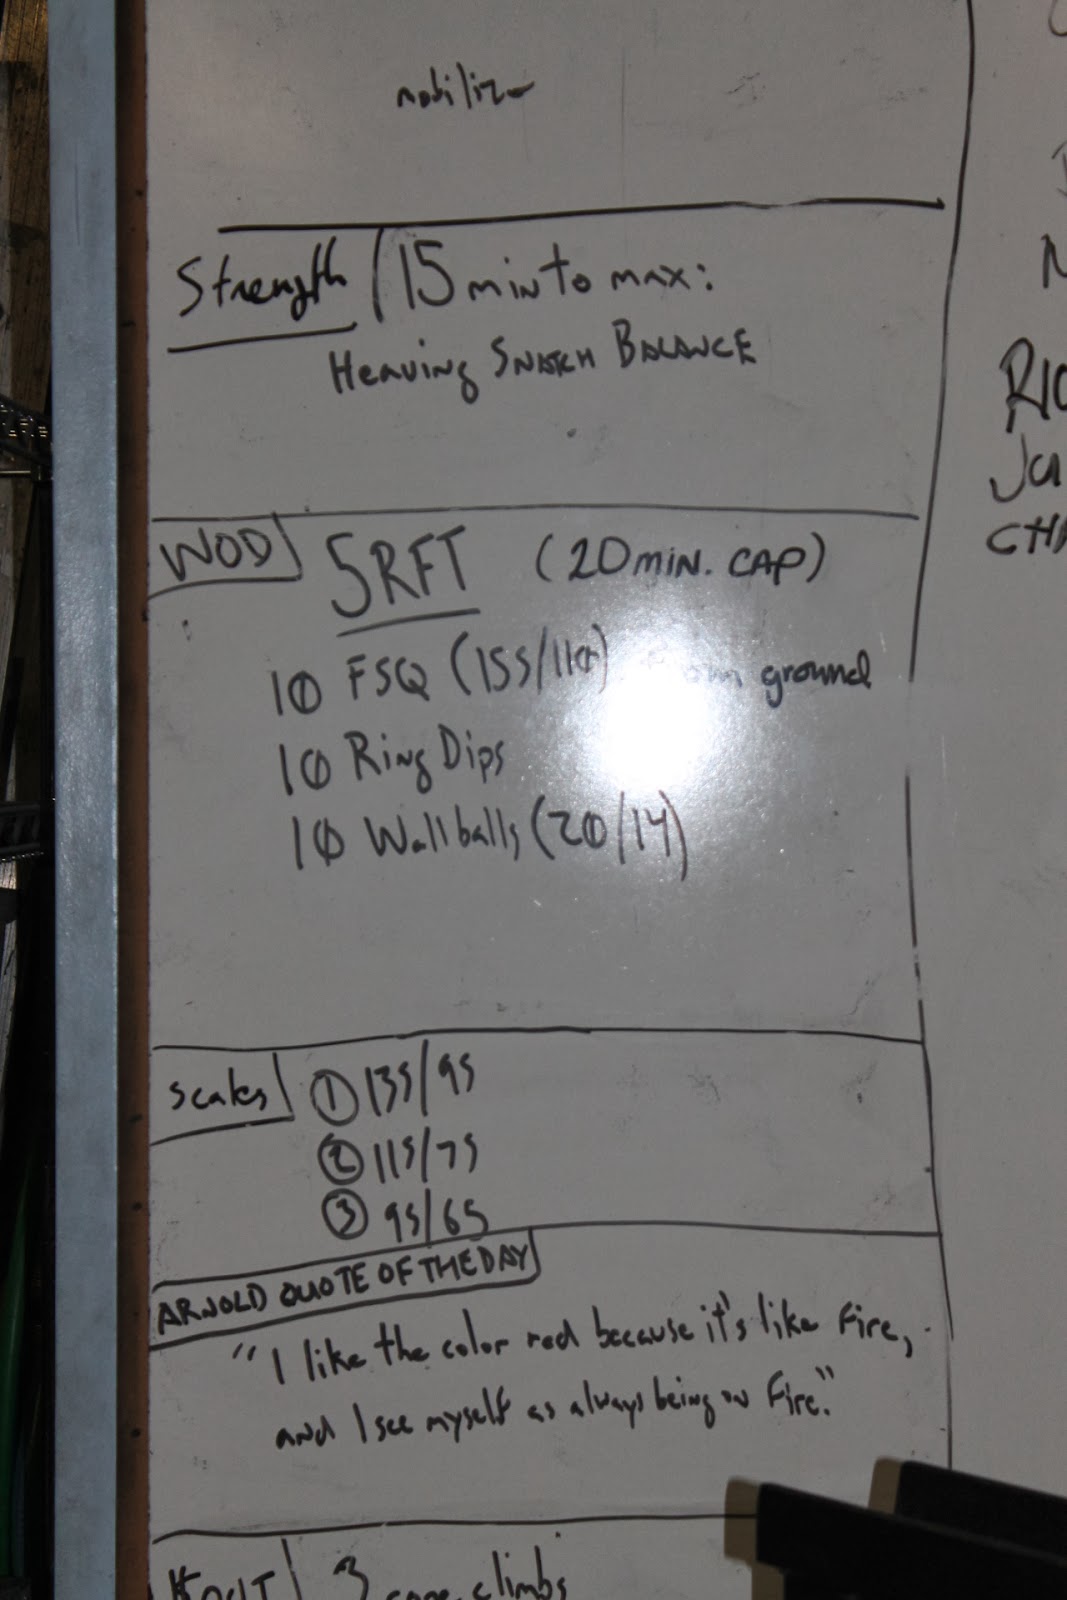 mobilize
Strength 15 min to max:
Heaving Snatch Balance
WOD 5RFT (20 min. cap)
10 FSQ (155/110) from ground
10 Ring Dips
10 Wallballs (20/14)
Scales ① 135/95
② 115/75
③ 95/65
ARNOLD QUOTE OF THE DAY
"I like the color red because it's like Fire,
and I see myself as always being on Fire."
3 rope climbs